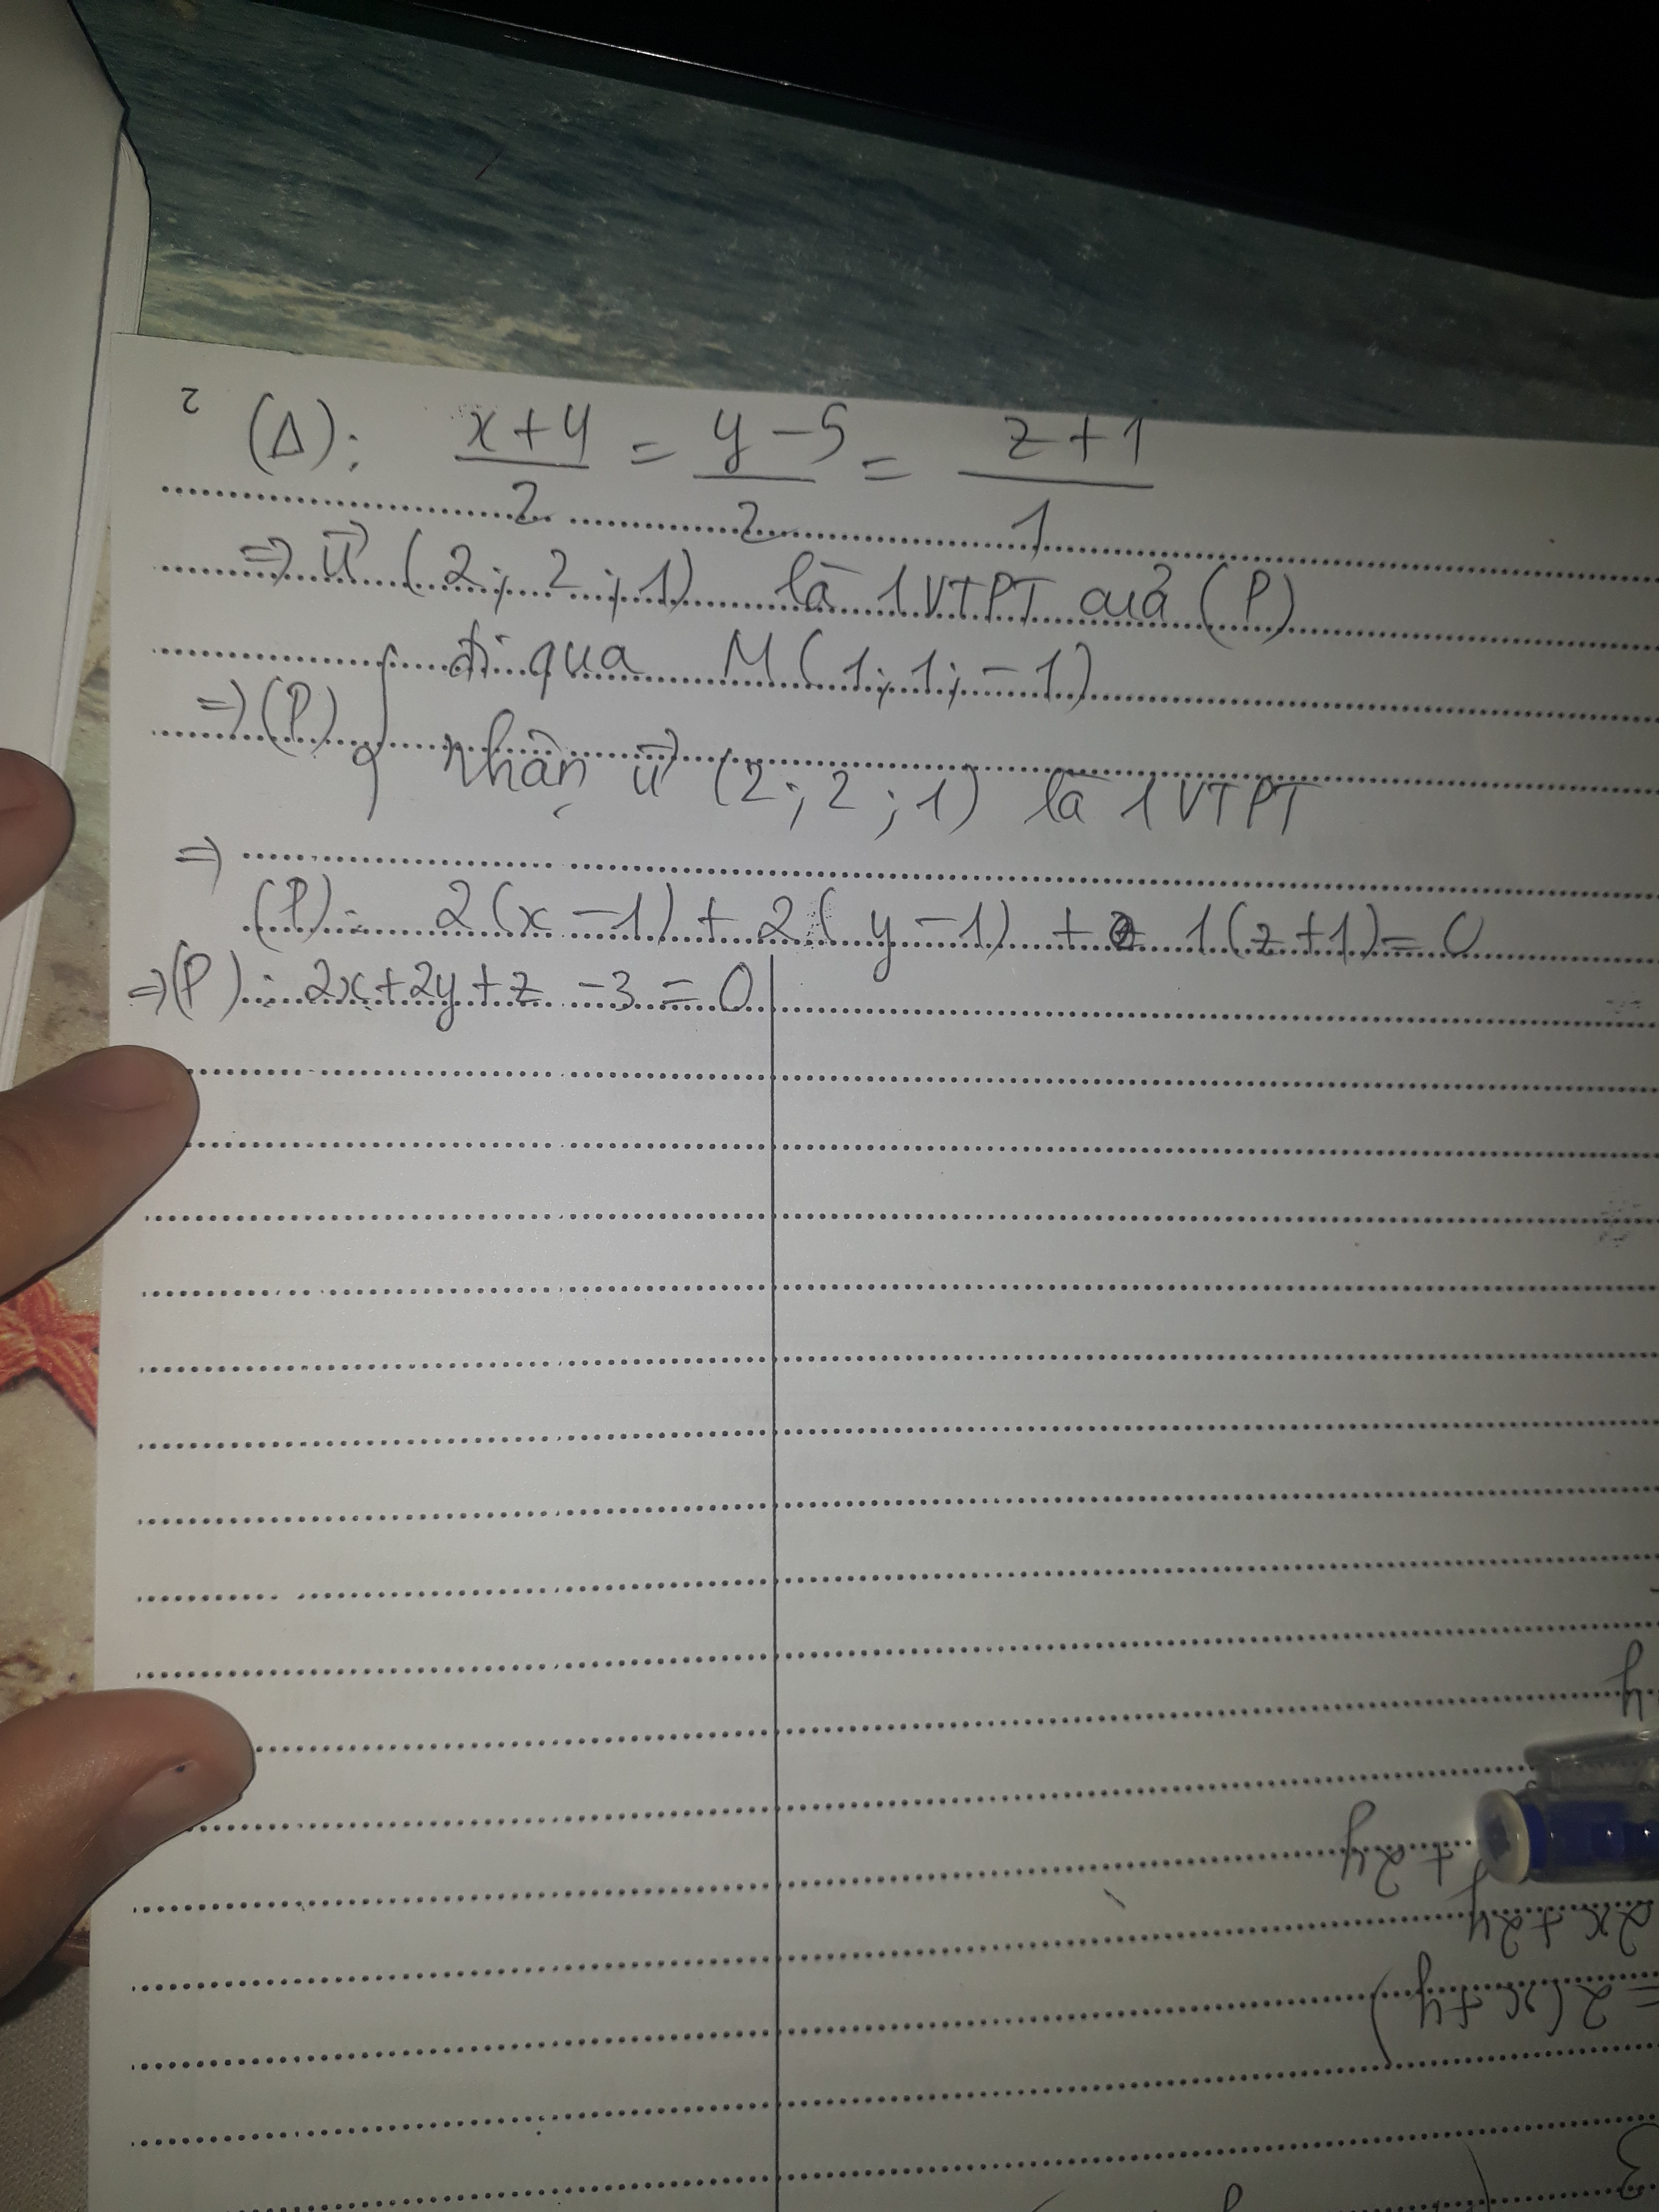 2 (Δ): x+4/2 = y-5/2 = z+1/1
=> u⃗ (2; 2; 1) là 1 VTPT của (P)
=> (P) { đi qua M(1; 1; -1)
nhận u⃗ (2; 2; 1) là 1 VTPT
=>
(P): 2(x-1) + 2(y-1) + 1(z+1) = 0
=> (P): 2x+2y+z -3 = 0
y
+ 2y
2x + 2y
= 2(x + y)
3